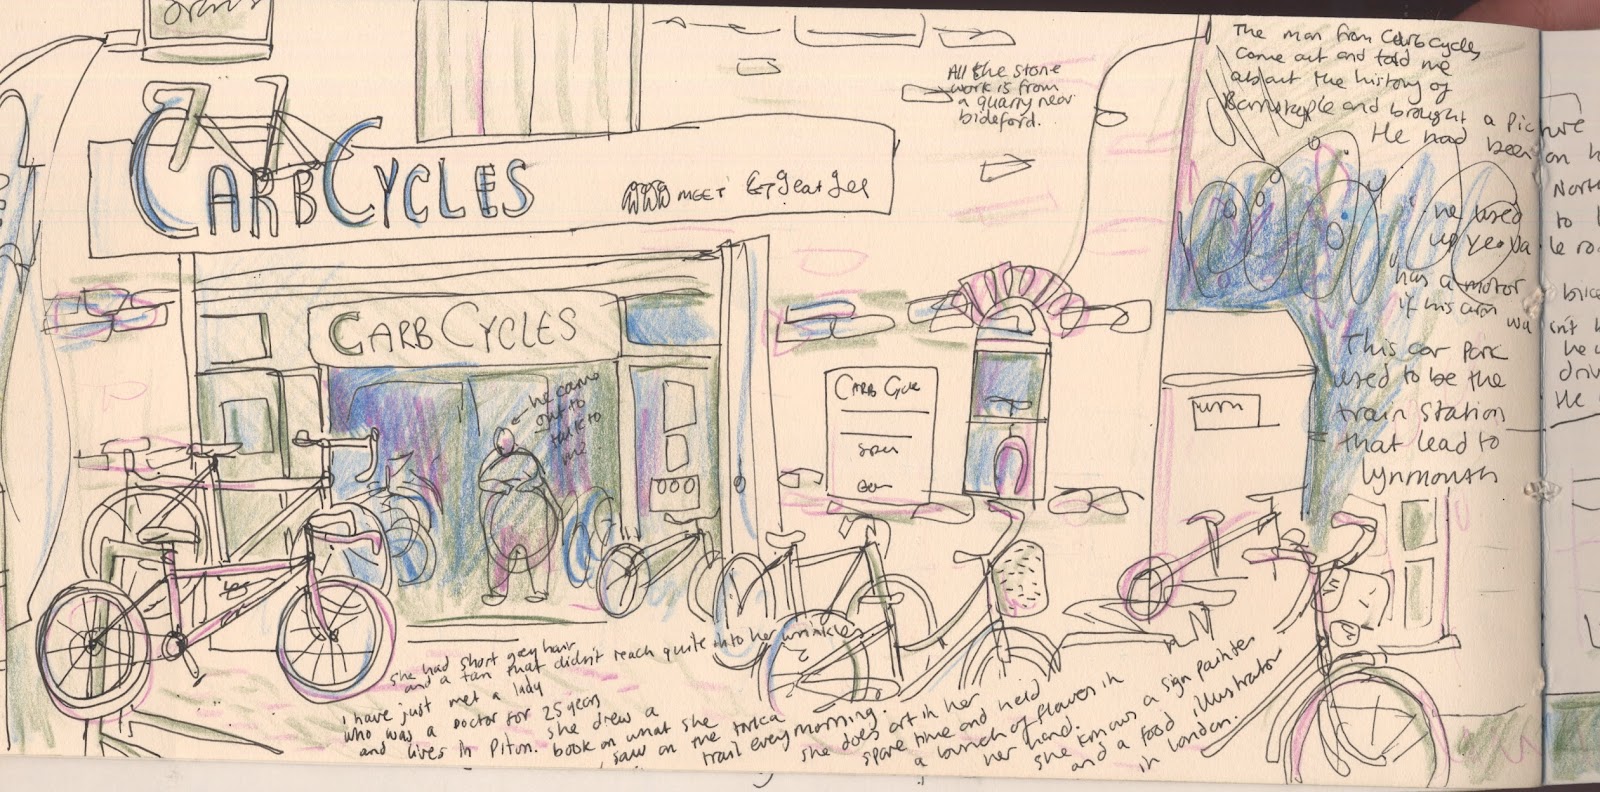 CARBCYCLES
www MEET
CARB CYCLES
he came
out to
talk to
me
CARB CYCLE
All the stone
work is from
a quarry near
bideford.
The man from Carb Cycles
came out and told me
about the history of
Barnstaple and brought a picture
He had been on h
Nort
he used to
up
le ro
has a motor
if his arm wasn't h
he w
driv
He
This car park
used to be the
train station
that lead to
Lynmouth
she had short grey hair
and a tan that didn't reach quite into her wrinkles
i have just met a lady
who was a Doctor for 25 years
and lives in Pilton. she drew a
book on what she
saw on the tarka
trail every morning.
she does art in her
spare time and held
a bunch of flowers in
her hand.
she knows a sign painter
and a food illustrator
in London.